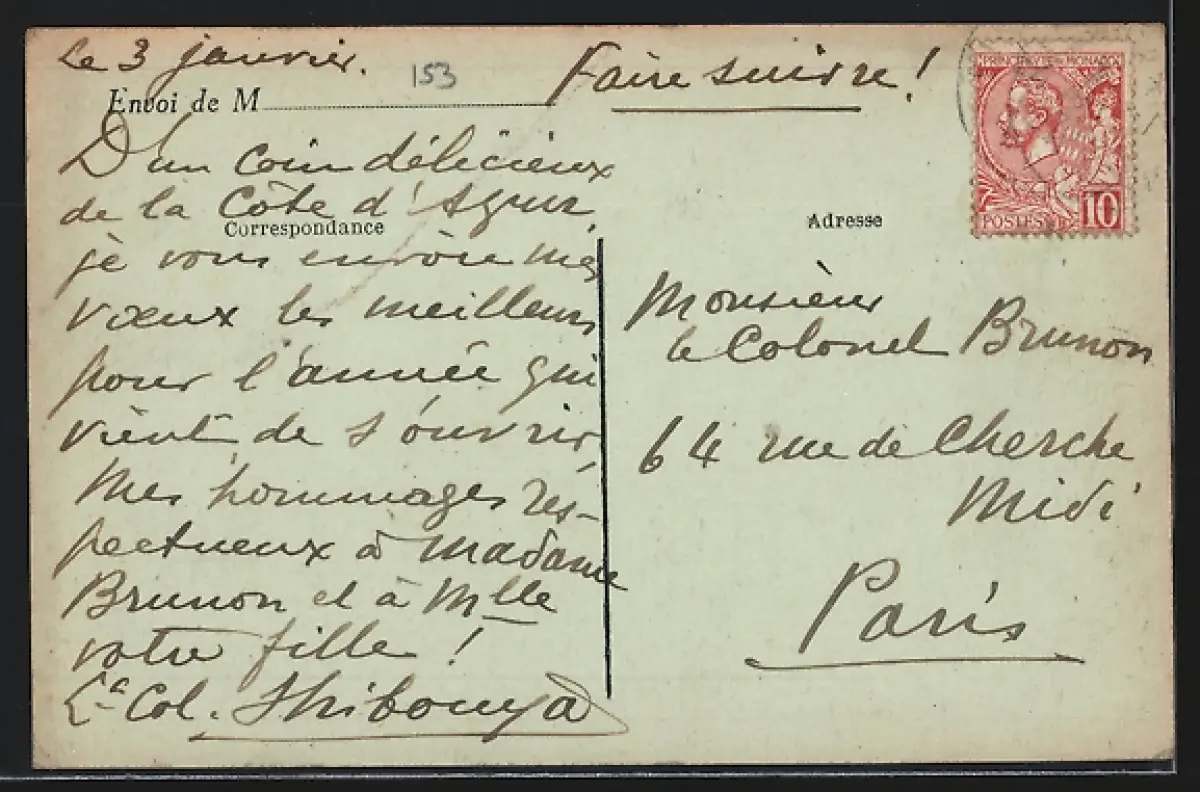 Le 3 janvier.
153
Faire suivre!
Envoi de M
D'un coin délicieux
de la Côte d'Azur
Correspondance
je vous envoie mes
vœux les meilleurs
pour l'année qui
vient de s'ouvrir.
Mes hommages res-
pectueux à Madame
Brunon et à Mlle
votre fille!
Lt Col. Shibouya
PRINCIPAUTÉ DE MONACO
POSTES
10
Adresse
Monsieur
le Colonel Brunon
64 rue de Cherche
Midi
Paris